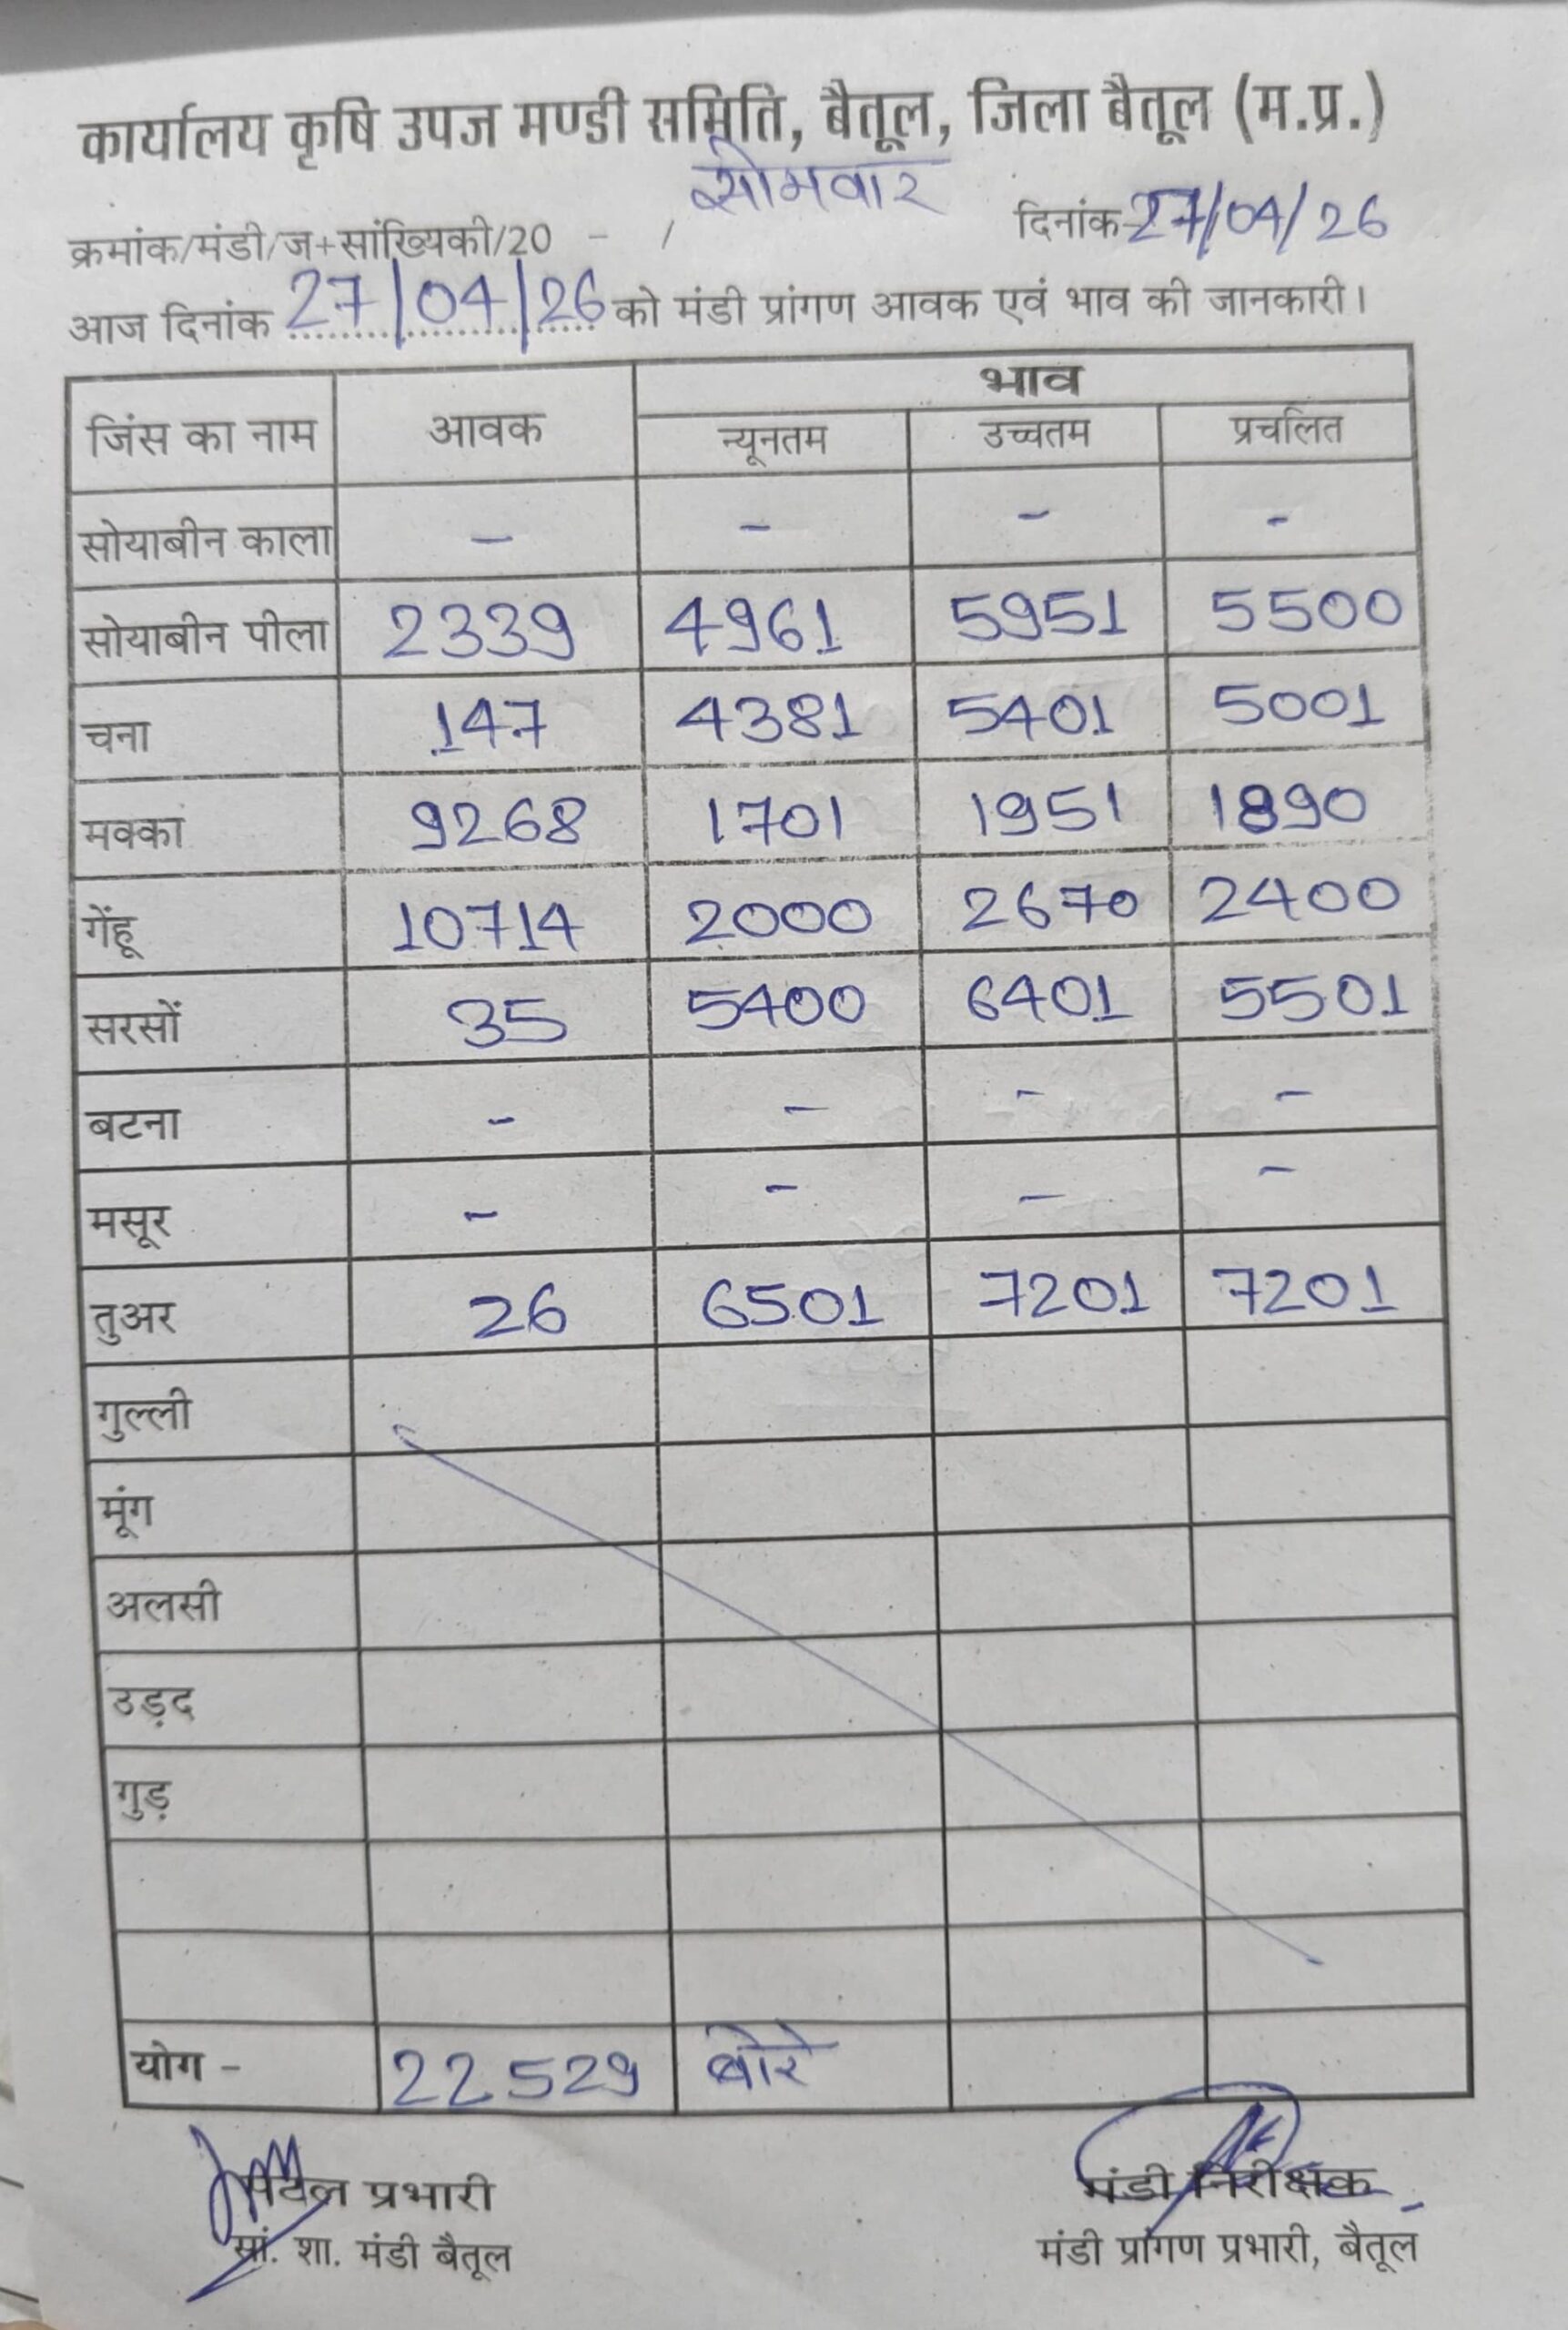 कार्यालय कृषि उपज मण्डी समिति, बैतूल, जिला बैतूल (म.प्र.)
सोमवार
क्रमांक/मंडी/ज+सांख्यिकी/20 - / दिनांक 27/04/26
आज दिनांक 27/04/26 को मंडी प्रांगण आवक एवं भाव की जानकारी।
जिंस का नाम आवक भाव
न्यूनतम उच्चतम प्रचलित
सोयाबीन काला - - - -
सोयाबीन पीला 2339 4961 5951 5500
चना 147 4381 5401 5001
मक्का 9268 1701 1951 1890
गेंहू 10714 2000 2670 2400
सरसों 35 5400 6401 5501
बटना - - - -
मसूर - - - -
तुअर 26 6501 7201 7201
गुल्ली
मूंग
अलसी
उड़द
गुड़
योग - 22529 बोरे
प्रभारी मंडी निरीक्षक
सां. शा. मंडी बैतूल मंडी प्रांगण प्रभारी, बैतूल